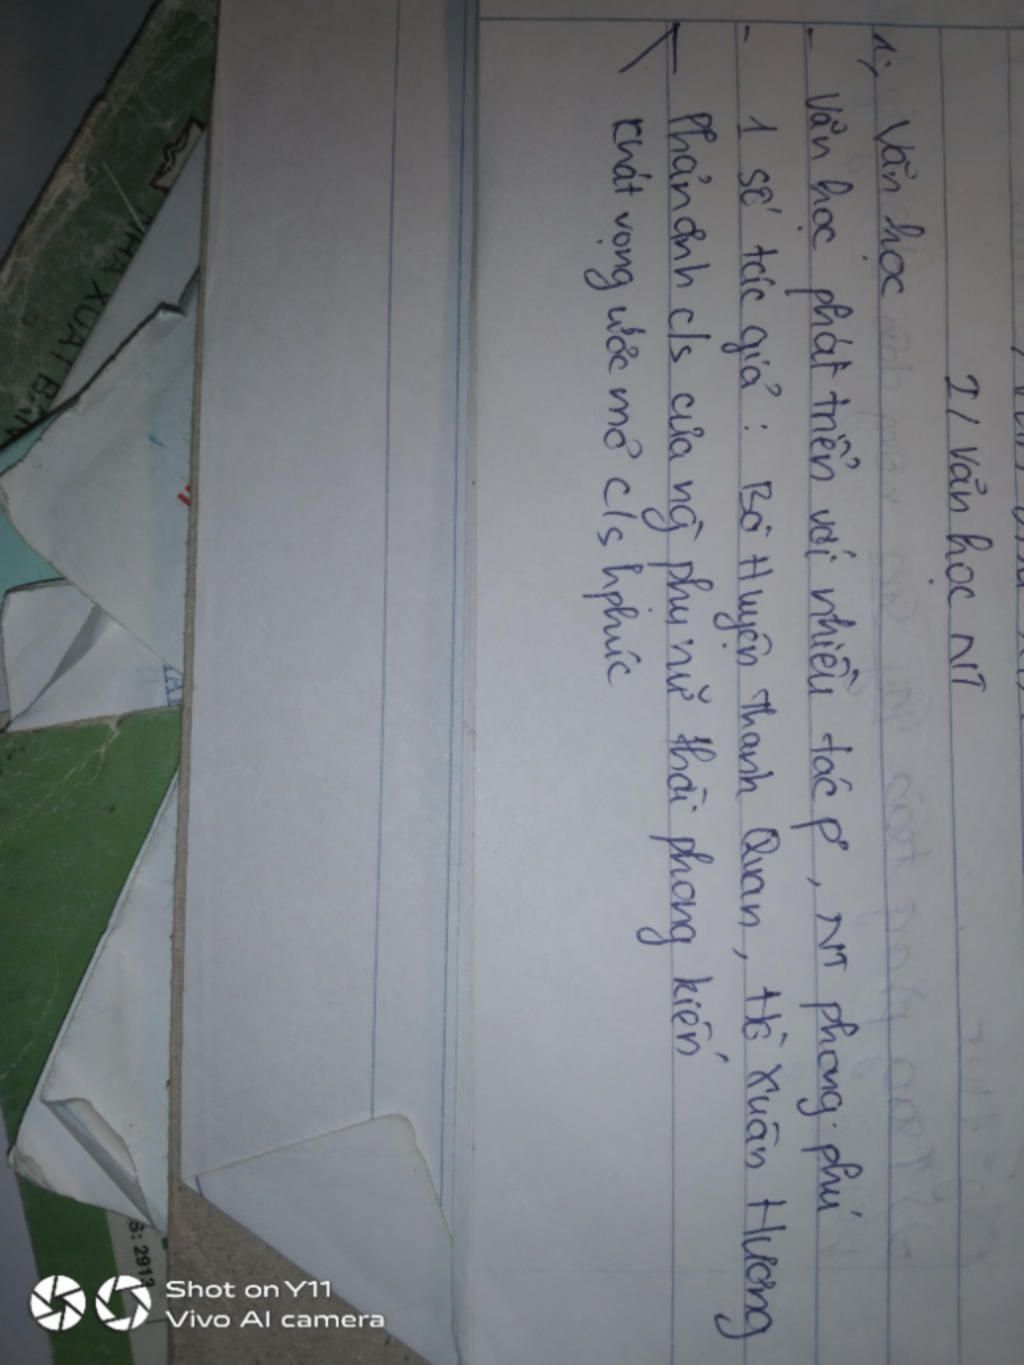 I/ Văn học NT
1, Văn học
- Văn học phát triển với nhiều tác p², NT phong phú
- 1 số tác giả : Bà Huyện Thanh Quan, Hồ Xuân Hương
Phản ánh c/s của ng` phụ nữ thời phong kiến
Khát vọng ước mở c/s hphúc
NHÀ XUẤT BẢN
S: 2912
Shot on Y11
Vivo AI camera